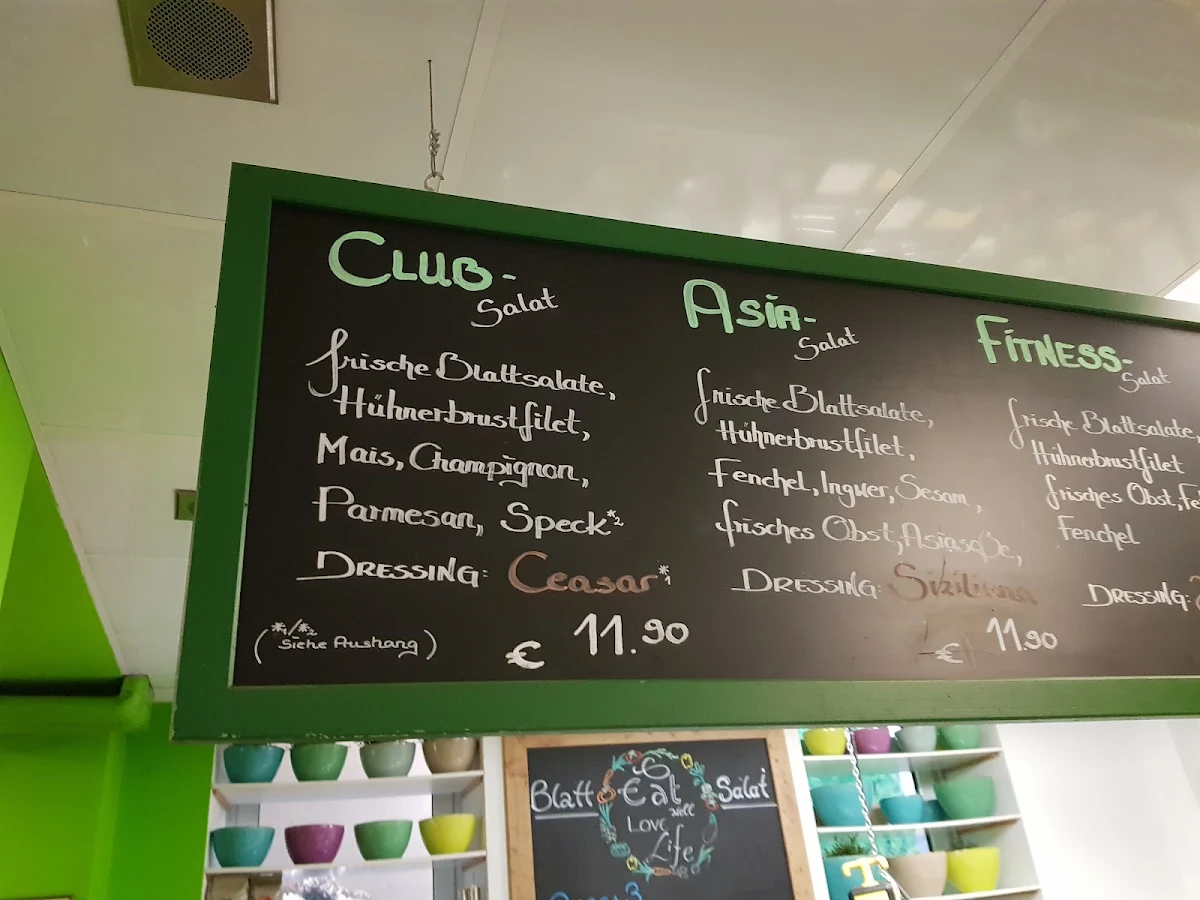 CLUB-
Salat
frische Blattsalate,
Hühnerbrustfilet,
Mais, Champignon,
Parmesan, Speck*2
DRESSING: Ceasar*1
(*1/*2 Siehe Aushang)
€ 11.90
ASIA-
Salat
frische Blattsalate,
Hühnerbrustfilet,
Fenchel, Ingwer, Sesam,
frisches Obst, Asiasoße,
DRESSING: Siziliana
€ 11.90
FITNESS-
Salat
frische Blattsalate,
Hühnerbrustfilet
frisches Obst,
Fenchel
DRESSING:
Blatt Salat
Eat
well
LOVE
Life